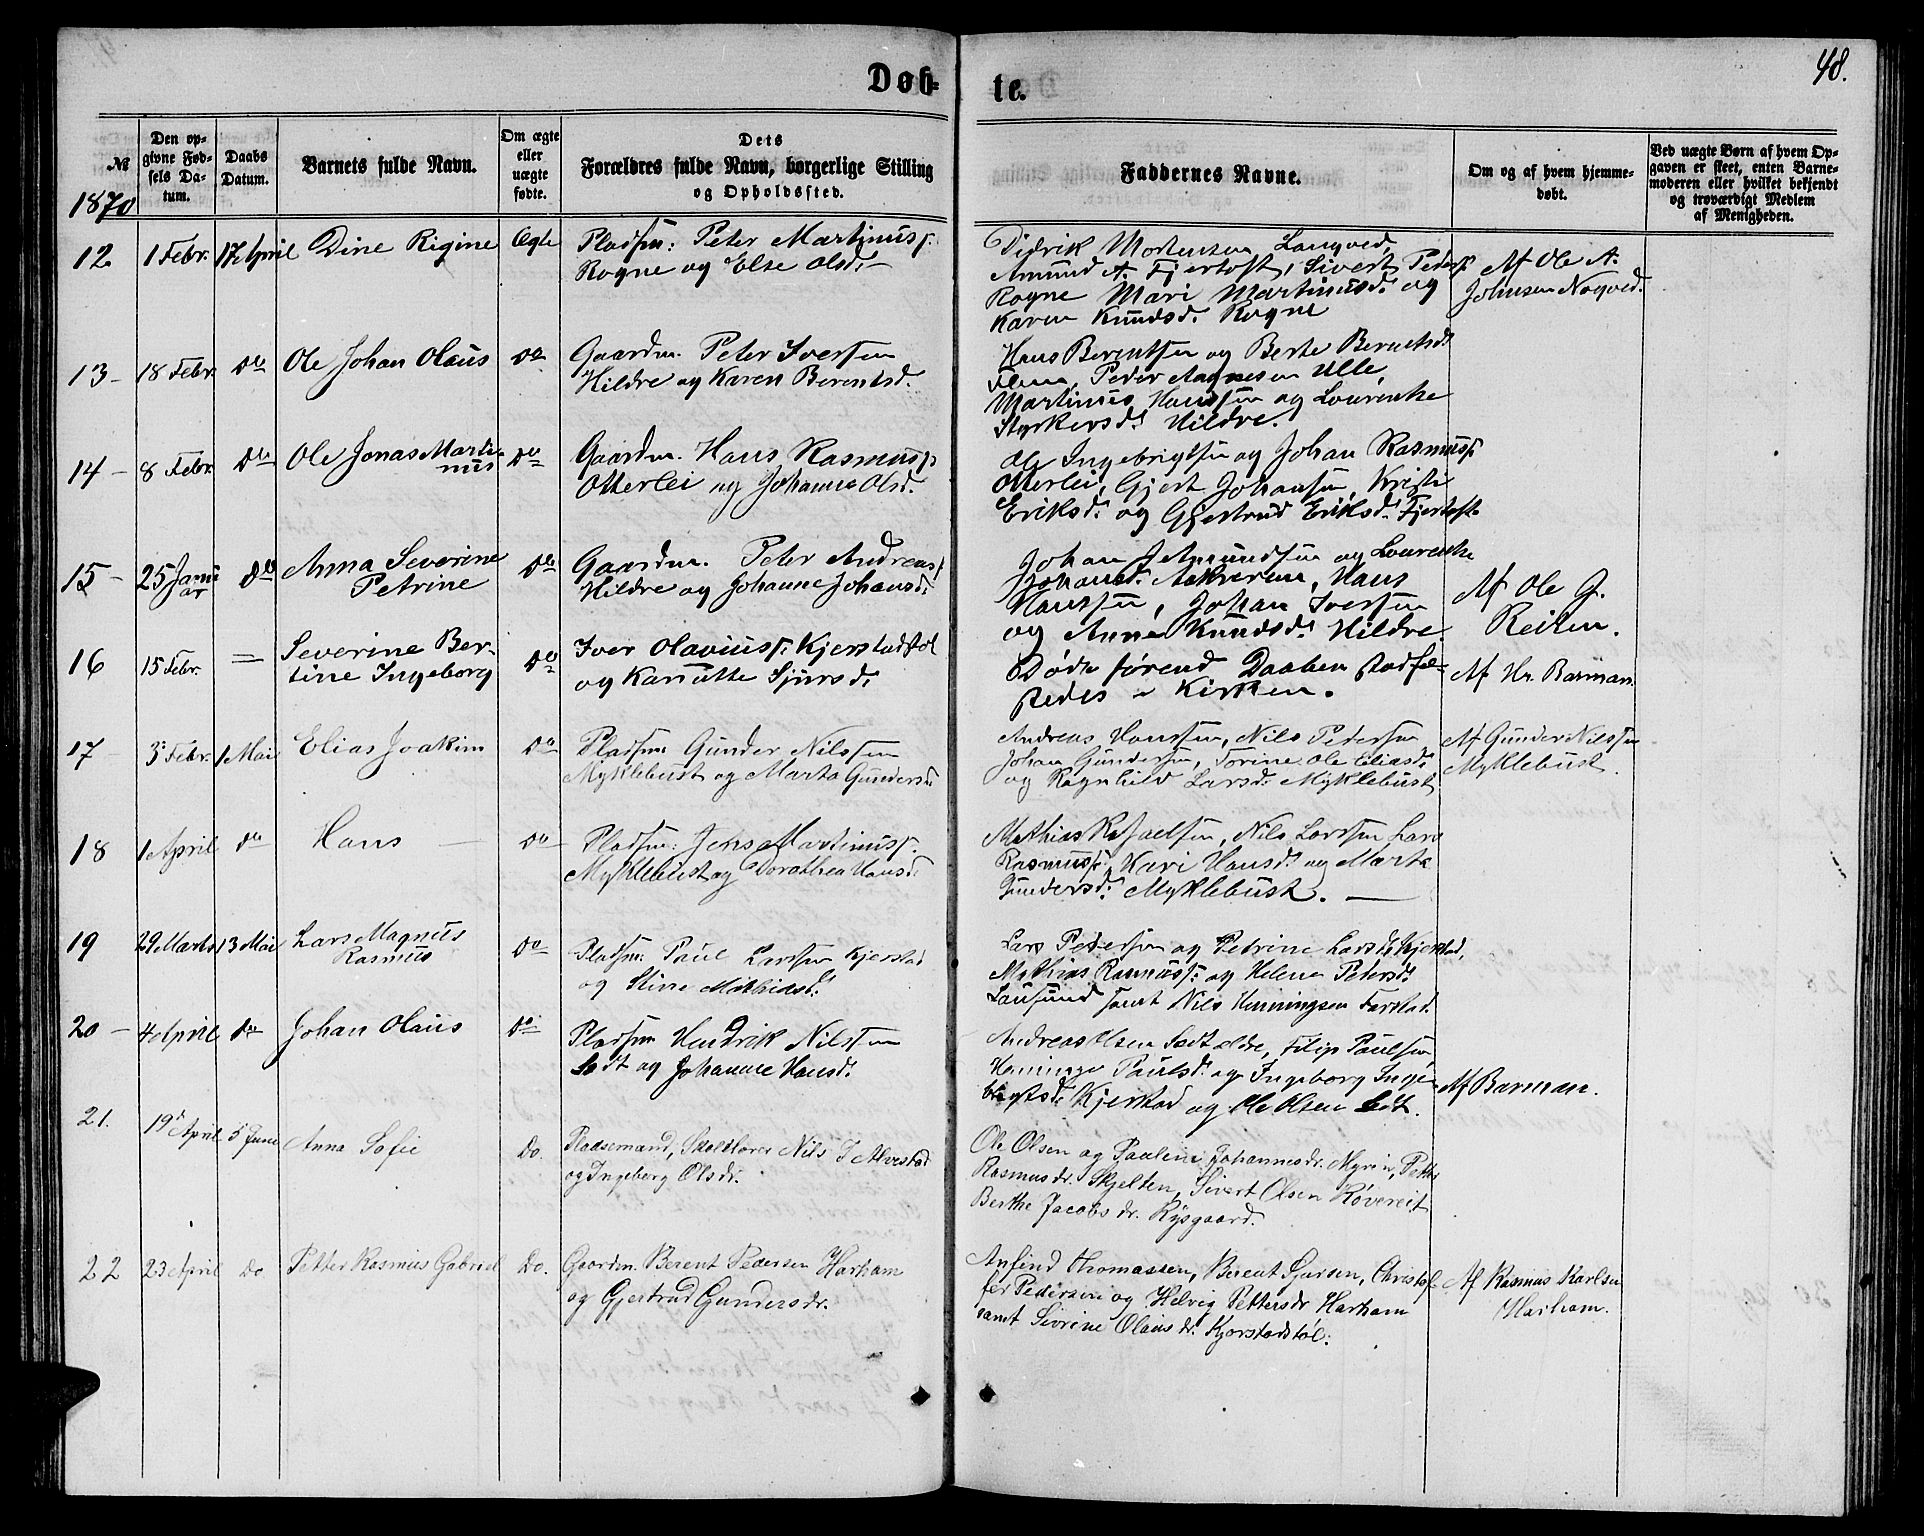 Døb-
te.
48.
№
1870
Den op-
givne Fød-
sels Da-
tum.
Daabs
Datum.
Barnets fulde Navn.
Om ægte
eller
uægte
fødte.
Dets
Forældres fulde Navn, borgerlige Stilling
og Opholdssted.
Faddernes Navne.
Om og af hvem hjemme-
døbt.
Ved uægte Børn af hvem Op-
gaven er skeet, enten Barne-
moderen eller hvilket bekjendt
og troværdigt Medlem
af Menigheden.
12 1 Febr. 17 April Dine Rigine Ægte Pladsm: Peter Martinuss.
Rogne og Else Olsd: –
Didrik Mortensen Longved,
Amund A. Fjertoft, Sivert Peders.
Rogne Mari Martinusd: og
Karen Knudsd. Rogne
Af Ole A.
Johnsen Nogved.
13 – 18 Febr. Do Ole Johan Olaus Do Gaardm. Peter Iversen
Hildre og Karen Berentsd.
Hans Berentsen og Berte Berentsd:
Flem, Peder Aagnesen Ulle,
Martinus Hansen og Lourentse
Styrkersd: Hildre.
14 – 8 Febr. Do Ole Jonas Marti-
nus Do Gaardm. Hans Rasmuss.
Otterlei og Johanne Olsd.
Ole Ingebrigtsen og Johan Rasmuss.
Otterlei, Gjert Johansen, Kriste
Eriksd. og Gjertrud Eriksd. Fjertoft
15 – 25 Janu
ar Do Anna Severine
Petrine Do Gaardm. Peter Andreas.
Hildre og Johanne Johansd:
Johan J Amundsen og Lourentse
Johansd. Aakrerem, Hans
Hanssen, Johan Iversen
og Anne Knudsd: Hildre
Af Ole G.
Reiten.
16 15 Febr. = Severine Ber-
tine Ingeborg Do Iver Olaviuss. Kjerstadstøl
og Kanutte Sjursd:
Døde førend Daaben stadfæ-
stedes i Kirken.
Af Hr. Barman.
17 3' Febr. 1 Mai Elias Joakim Do Pladsm: Gunder Nilssen
Myklebust og Marta Gundersd:
Andreas Hanssen, Nils Pedersen
Johan Gundersen, Torine Ole Eliasd:
og Ragnhild Larsd: Myklebust
Af Gunder Nilssen
Myklebust.
18 1 April do Hans – Do Pladsm: Jens Martinuss.
Myklebust og Dorothea Hansd:
Mathias Rafaelsen, Nils Larssen Lars
Rasmuss. Kari Hansd: og Marte
Gundersd: Myklebust. –
19 29 Marts 13 Mai Lars Magnus
Rasmus Do Pladsm: Paul Larssen Kjerstad
og Stine Mathiasd:
Lars Pedersen og Petrine Larsd: Kjerstad,
Mathias Rasmuss: og Helene Petersd:
Lausund samt Nils Henningsen Farstad.
20 – 4 April do Johan Olaus Do Pladsm Hendrik Nilssen
Sødt og Johanne Hansd:
Andreas Olsen Sødt ældre, Filip Paulsen
Henninge Paulsd: og Ingeborg Inge-
brigtsd: Kjerstad og Ole Olsen Sødt.
Af Barman.
21. 19 April 5' Juni Anna Sofie Do. Pladsemand, Skolelærer Nils J Alvestad
og Ingeborg Olsdr.
Ole Olsen og Pauline Johannesdr. Myrin, Petter
Rasmusdr. Skjelten, Sivert Olsen Røvereit
Berthe Jacobsdr. Rysgaard.
22 23 April Do Petter Rasmus Gabriel Do. Gaardm. Berent Pedersen Harham
og Gjertrud Gundersdr.
Anfind Thomassen, Berent Sjursen, Christof-
fer Pedersen og Helvig Pettersdr Harham
samt Sivrine Olausdr. Kjerstadstøl.
Af Rasmus Karlsen
Harham.